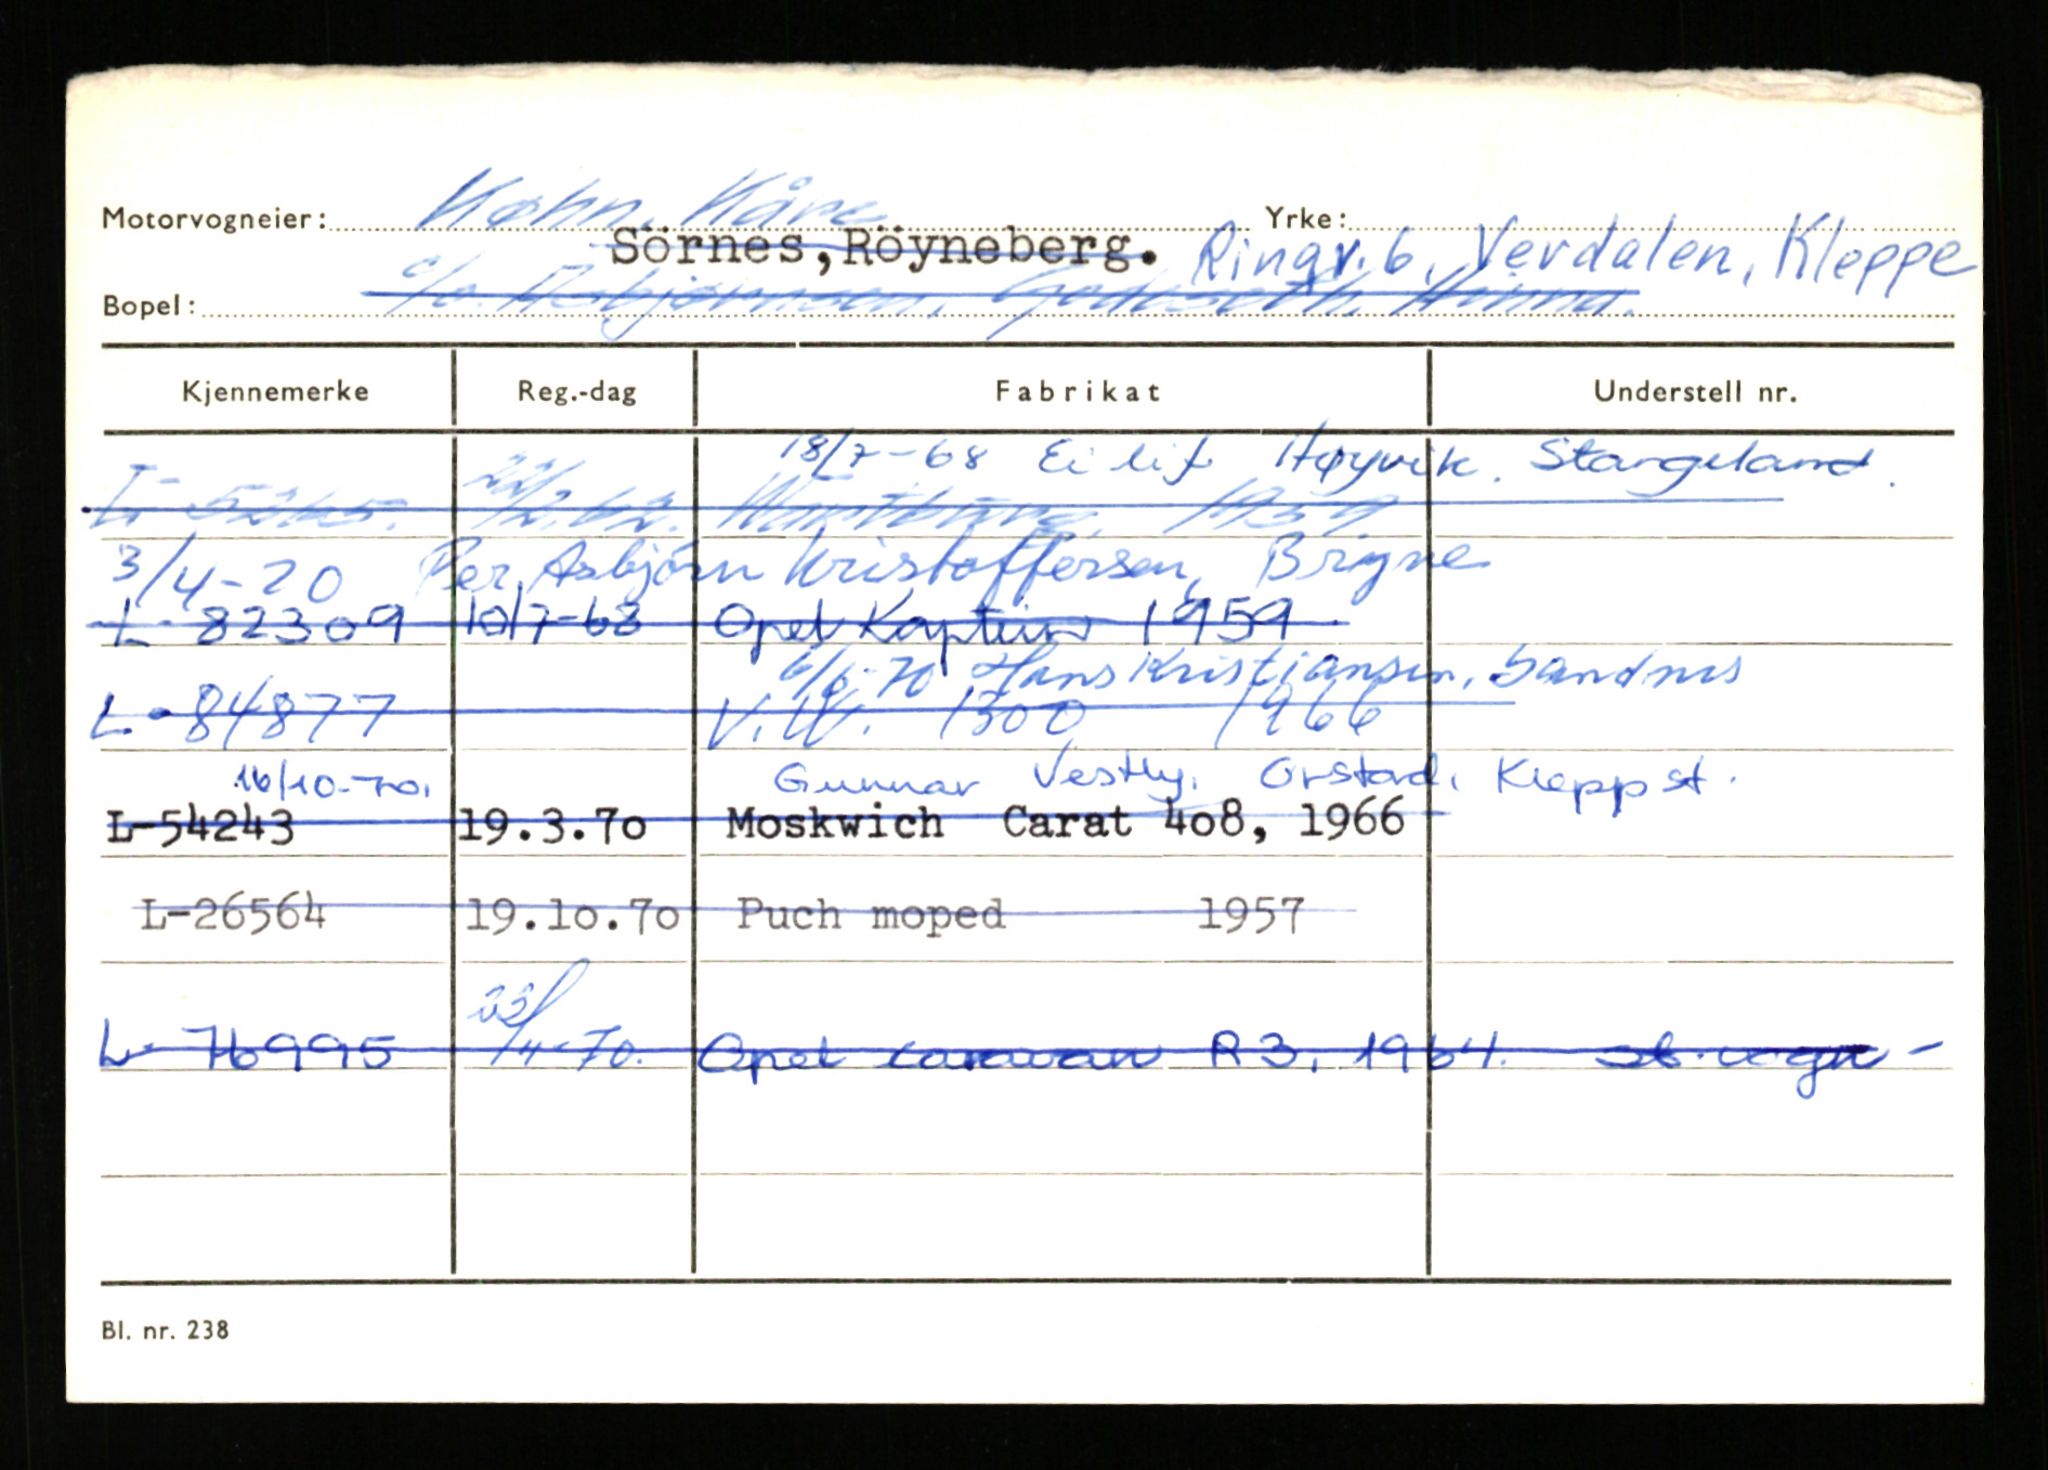 Motorvogneier: Køhn, Kåre Yrke:
Sörnes, Röyneberg. Ringv. 6, Verdalen, Kleppe
Bopel: c/o Asbjørnsen, Godeseth, Hinna.
Kjennemerke Reg.-dag Fabrikat Understell nr.
18/7-68 Eilif Høyvik. Stangeland.
L- 5265. 22/2.62. Wartburg 1959
3/4-70 Per Asbjörn Kristoffersen, Brÿne
L- 82309 10/7-68 Opel Kaptein 1959
6/6-70 Hans Kristiansen, Sandnes
L- 84877 V.W. 1300 1966
16/10-70. Gunnar Vestly, Orstad, Kleppst.
L-54243 19.3.70 Moskwich Carat 4o8, 1966
L-26564 19.1o.70 Puch moped 1957
L- 76995 23/4-70. Opel caravan R3, 1964. st.vogn -
Bl. nr. 238